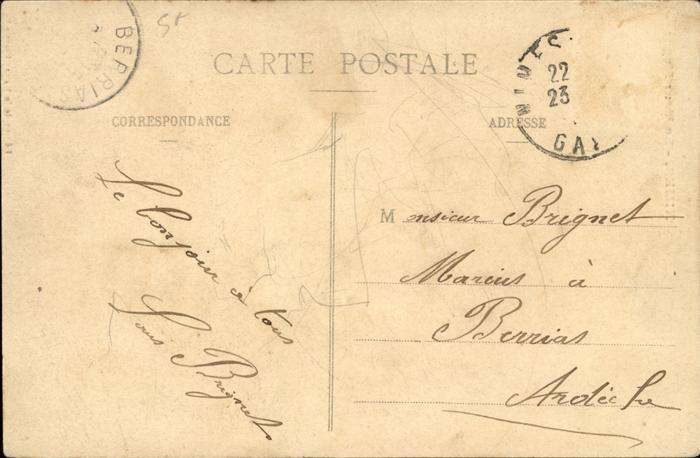 St
BERRIAS
CARTE POSTALE
22
23
CORRESPONDANCE
ADRESSE
Le bonjour à tous
Louis Brignet
Monsieur Brignet
Marius à
Berrias
Ardèche